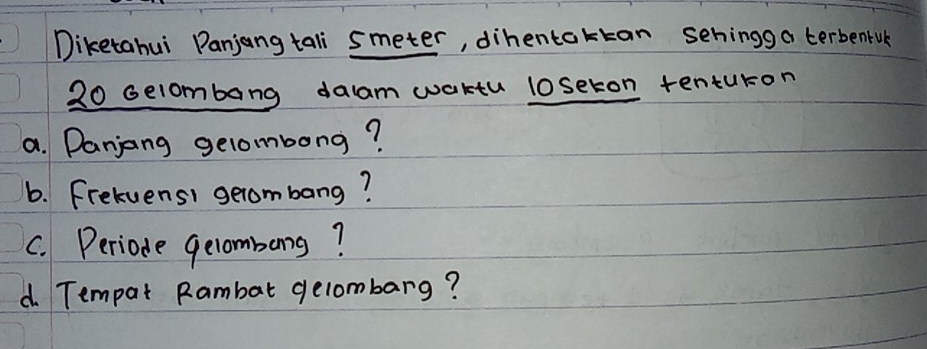 Diketahui Panjang tali 5 meter, dihentakkan sehingga terbentuk
20 Gelombang dalam waktu 10 sekon tentukan
a. Panjang gelombang?
b. Frekuensi gelombang?
c. Periode gelombang?
d. Tempat Rambat gelombang?